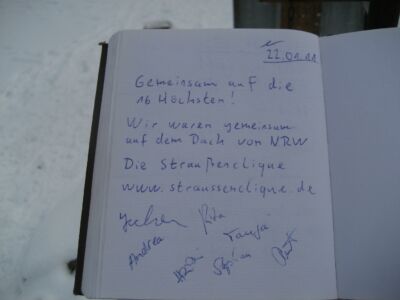 22.01.11
Gemeinsam auf die
16 Höchsten!
Wir waren gemeinsam
auf dem Dach von NRW
Die Straußenclique
www.straussenclique.de
Rita
Andrea
Tanja